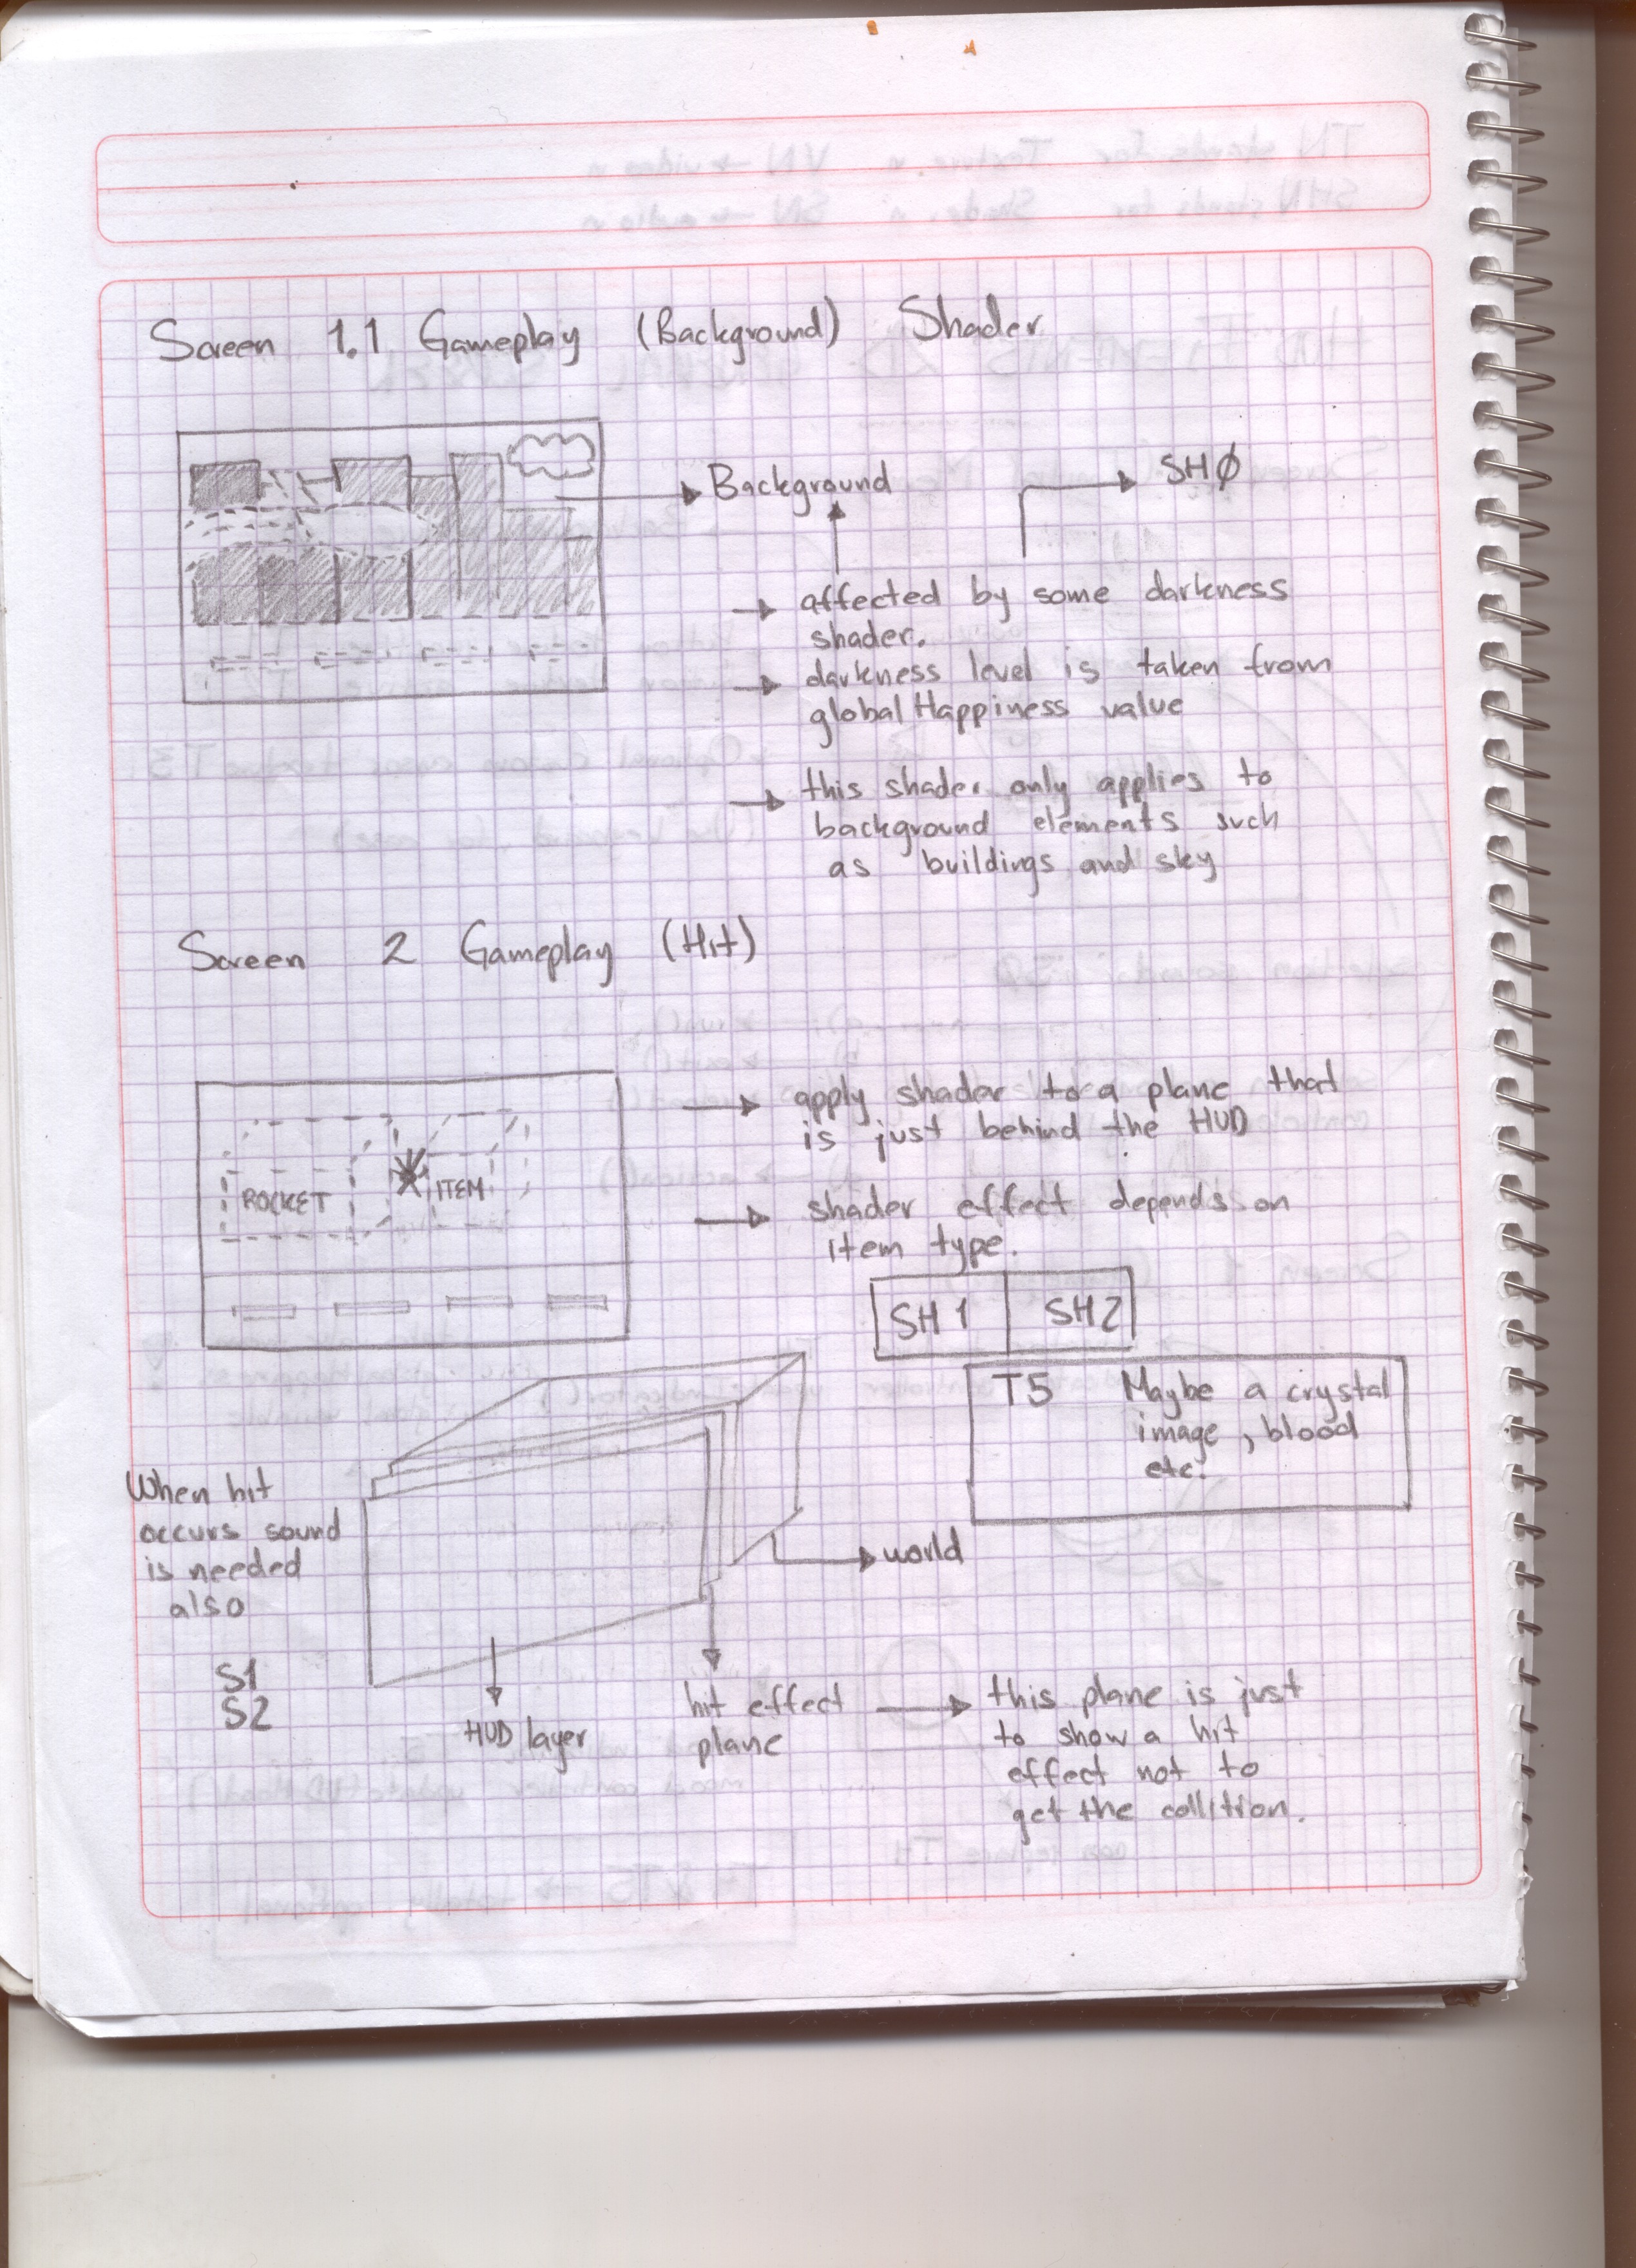 Screen 1.1 Gameplay (Background) Shader
Background
SHØ
affected by some darkness
shader.
darkness level is taken from
global Happiness value
this shader only applies to
background elements such
as buildings and sky
Screen 2 Gameplay (Hit)
apply shader to a plane that
is just behind the HUD
ROCKET
ITEM
shader effect depends on
item type.
SH1 SH2
T5 Maybe a crystal
image, blood
etc.
When hit
occurs sound
is needed
also
S1
S2
world
HUD layer
hit effect
plane
this plane is just
to show a hit
effect not to
get the collition.